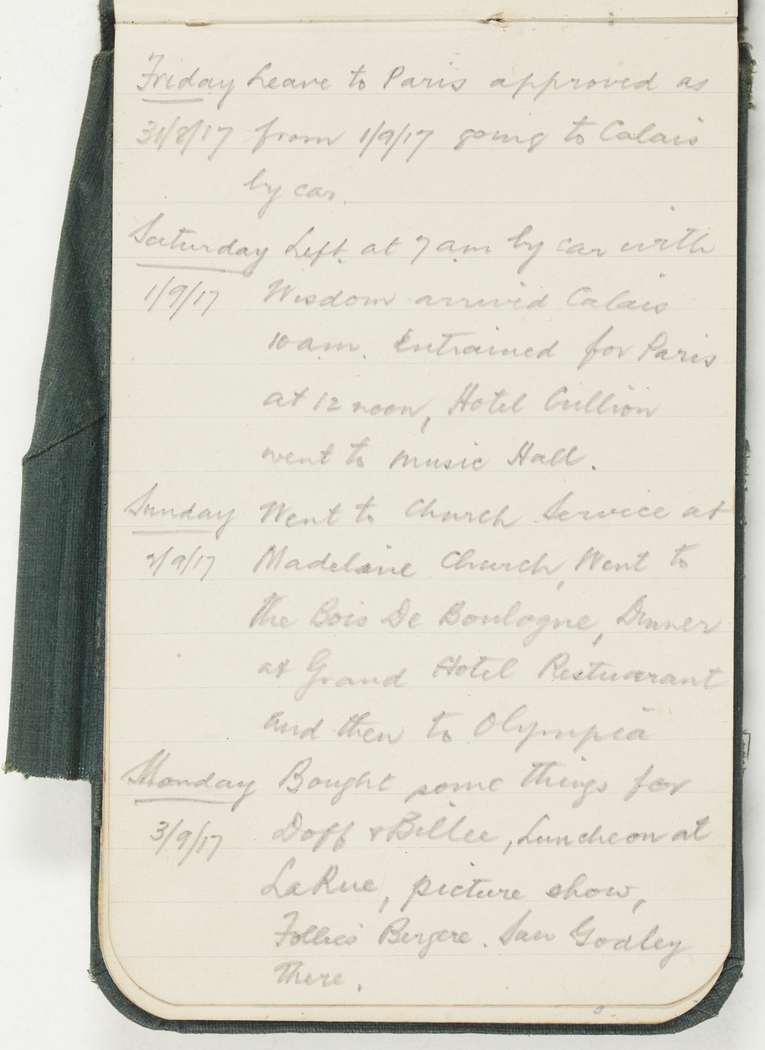 Friday Leave to Paris approved as
31/8/17 from 1/9/17 going to Calais
by car.
Saturday Left at 7 am by car with
1/9/17 Wisdom arrived Calais
10 am. Entrained for Paris
at 12 noon, Hotel Crillion
went to music Hall.
Sunday Went to Church Service at
2/9/17 Madelaine Church, Went to
the Bois De Boulogne, Dinner
at Grand Hotel Restuarant
and then to Olympia
Monday Bought some things for
3/9/17 Doff & Billee, Luncheon at
LaRue, picture show,
Follies Bergere. Saw Godley
there.